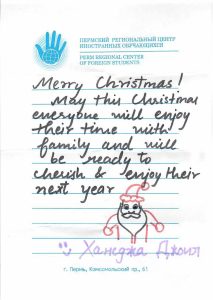 ПЕРМСКИЙ РЕГИОНАЛЬНЫЙ ЦЕНТР
ИНОСТРАННЫХ ОБУЧАЮЩИХСЯ
PERM REGIONAL CENTER
OF FOREIGN STUDENTS
Merry Christmas!
May this Christmas
everyone will enjoy
their time with
family and will
be ready to
cherish & enjoy their
next year
Ханеджа Джоил
г. Пермь, Комсомольский пр., 61